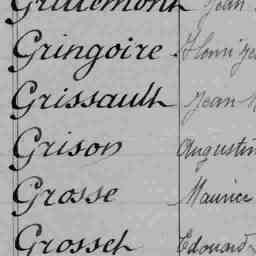 Grillemont Jean
Gringoire Henri
Grissault Jean
Grison Augustin
Grosse Maurice
Grosset Edouard